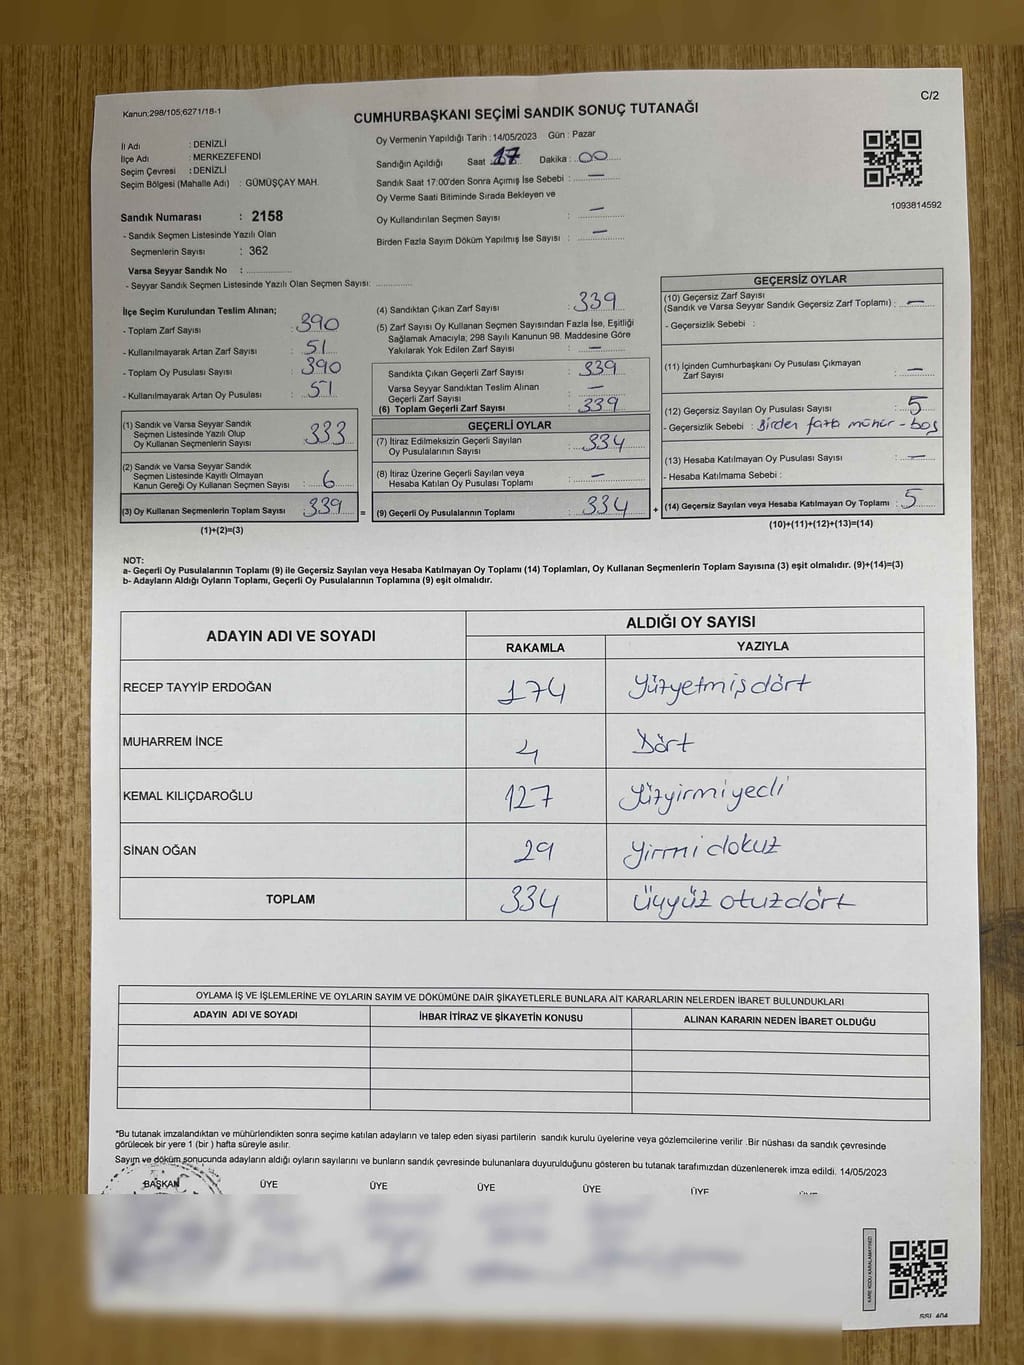 Kanun;298/105;6271/18-1
C/2
CUMHURBAŞKANI SEÇİMİ SANDIK SONUÇ TUTANAĞI
İl Adı : DENİZLİ
İlçe Adı : MERKEZEFENDİ
Seçim Çevresi : DENİZLİ
Seçim Bölgesi (Mahalle Adı) : GÜMÜŞÇAY MAH.
Sandık Numarası : 2158
- Sandık Seçmen Listesinde Yazılı Olan
Seçmenlerin Sayısı : 362
Varsa Seyyar Sandık No : ..............
- Seyyar Sandık Seçmen Listesinde Yazılı Olan Seçmen Sayısı: ..............
Oy Vermenin Yapıldığı Tarih : 14/05/2023 Gün : Pazar
Sandığın Açıldığı Saat : 17 Dakika : 00
Sandık Saat 17:00'den Sonra Açımış İse Sebebi : —
Oy Verme Saati Bitiminde Sırada Bekleyen ve
Oy Kullandırılan Seçmen Sayısı : —
Birden Fazla Sayım Döküm Yapılmış İse Sayısı : —
1093814592
İlçe Seçim Kurulundan Teslim Alınan;
- Toplam Zarf Sayısı : 390
- Kullanılmayarak Artan Zarf Sayısı : 51
- Toplam Oy Pusulası Sayısı : 390
- Kullanılmayarak Artan Oy Pusulası : 51
(1) Sandık ve Varsa Seyyar Sandık
Seçmen Listesinde Yazılı Olup
Oy Kullanan Seçmenlerin Sayısı 333
(2) Sandık ve Varsa Seyyar Sandık
Seçmen Listesinde Kayıtlı Olmayan
Kanun Gereği Oy Kullanan Seçmen Sayısı : 6
(3) Oy Kullanan Seçmenlerin Toplam Sayısı : 339
=
(1)+(2)=(3)
(4) Sandıktan Çıkan Zarf Sayısı : 339
(5) Zarf Sayısı Oy Kullanan Seçmen Sayısından Fazla İse, Eşitliği
Sağlamak Amacıyla; 298 Sayılı Kanunun 98. Maddesine Göre
Yakılarak Yok Edilen Zarf Sayısı : —
Sandıkta Çıkan Geçerli Zarf Sayısı : 339
Varsa Seyyar Sandıktan Teslim Alınan
Geçerli Zarf Sayısı : —
(6) Toplam Geçerli Zarf Sayısı : 339
GEÇERLİ OYLAR
(7) İtiraz Edilmeksizin Geçerli Sayılan
Oy Pusulalarının Sayısı : 334
(8) İtiraz Üzerine Geçerli Sayılan veya
Hesaba Katılan Oy Pusulası Toplamı : —
(9) Geçerli Oy Pusulalarının Toplamı : 334
+
GEÇERSİZ OYLAR
(10) Geçersiz Zarf Sayısı
(Sandık ve Varsa Seyyar Sandık Geçersiz Zarf Toplamı) : —
- Geçersizlik Sebebi :
(11) İçinden Cumhurbaşkanı Oy Pusulası Çıkmayan
Zarf Sayısı : —
(12) Geçersiz Sayılan Oy Pusulası Sayısı : 5
- Geçersizlik Sebebi : Birden fazla mühür - boş
(13) Hesaba Katılmayan Oy Pusulası Sayısı : —
- Hesaba Katılmama Sebebi :
(14) Geçersiz Sayılan veya Hesaba Katılmayan Oy Toplamı : 5
(10)+(11)+(12)+(13)=(14)
NOT:
a- Geçerli Oy Pusulalarının Toplamı (9) ile Geçersiz Sayılan veya Hesaba Katılmayan Oy Toplamı (14) Toplamları, Oy Kullanan Seçmenlerin Toplam Sayısına (3) eşit olmalıdır. (9)+(14)=(3)
b- Adayların Aldığı Oyların Toplamı, Geçerli Oy Pusulalarının Toplamına (9) eşit olmalıdır.
ADAYIN ADI VE SOYADI
ALDIĞI OY SAYISI
RAKAMLA YAZIYLA
RECEP TAYYİP ERDOĞAN 174 Yüzyetmişdört
MUHARREM İNCE 4 Dört
KEMAL KILIÇDAROĞLU 127 Yüzyirmiyedi
SİNAN OĞAN 29 Yirmidokuz
TOPLAM 334 Üçyüz otuzdört
OYLAMA İŞ VE İŞLEMLERİNE VE OYLARIN SAYIM VE DÖKÜMÜNE DAİR ŞİKAYETLERLE BUNLARA AİT KARARLARIN NELERDEN İBARET BULUNDUKLARI
ADAYIN ADI VE SOYADI İHBAR İTİRAZ VE ŞİKAYETİN KONUSU ALINAN KARARIN NEDEN İBARET OLDUĞU
*Bu tutanak imzalandıktan ve mühürlendikten sonra seçime katılan adayların ve talep eden siyasi partilerin sandık kurulu üyelerine veya gözlemcilerine verilir .Bir nüshası da sandık çevresinde
görülecek bir yere 1 (bir ) hafta süreyle asılır.
Sayım ve döküm sonucunda adayların aldığı oyların sayılarını ve bunların sandık çevresinde bulunanlara duyurulduğunu gösteren bu tutanak tarafımızdan düzenlenerek imza edildi. 14/05/2023
BAŞKAN ÜYE ÜYE ÜYE ÜYE ÜYE
KARE KODU KARALAMAYINIZ!